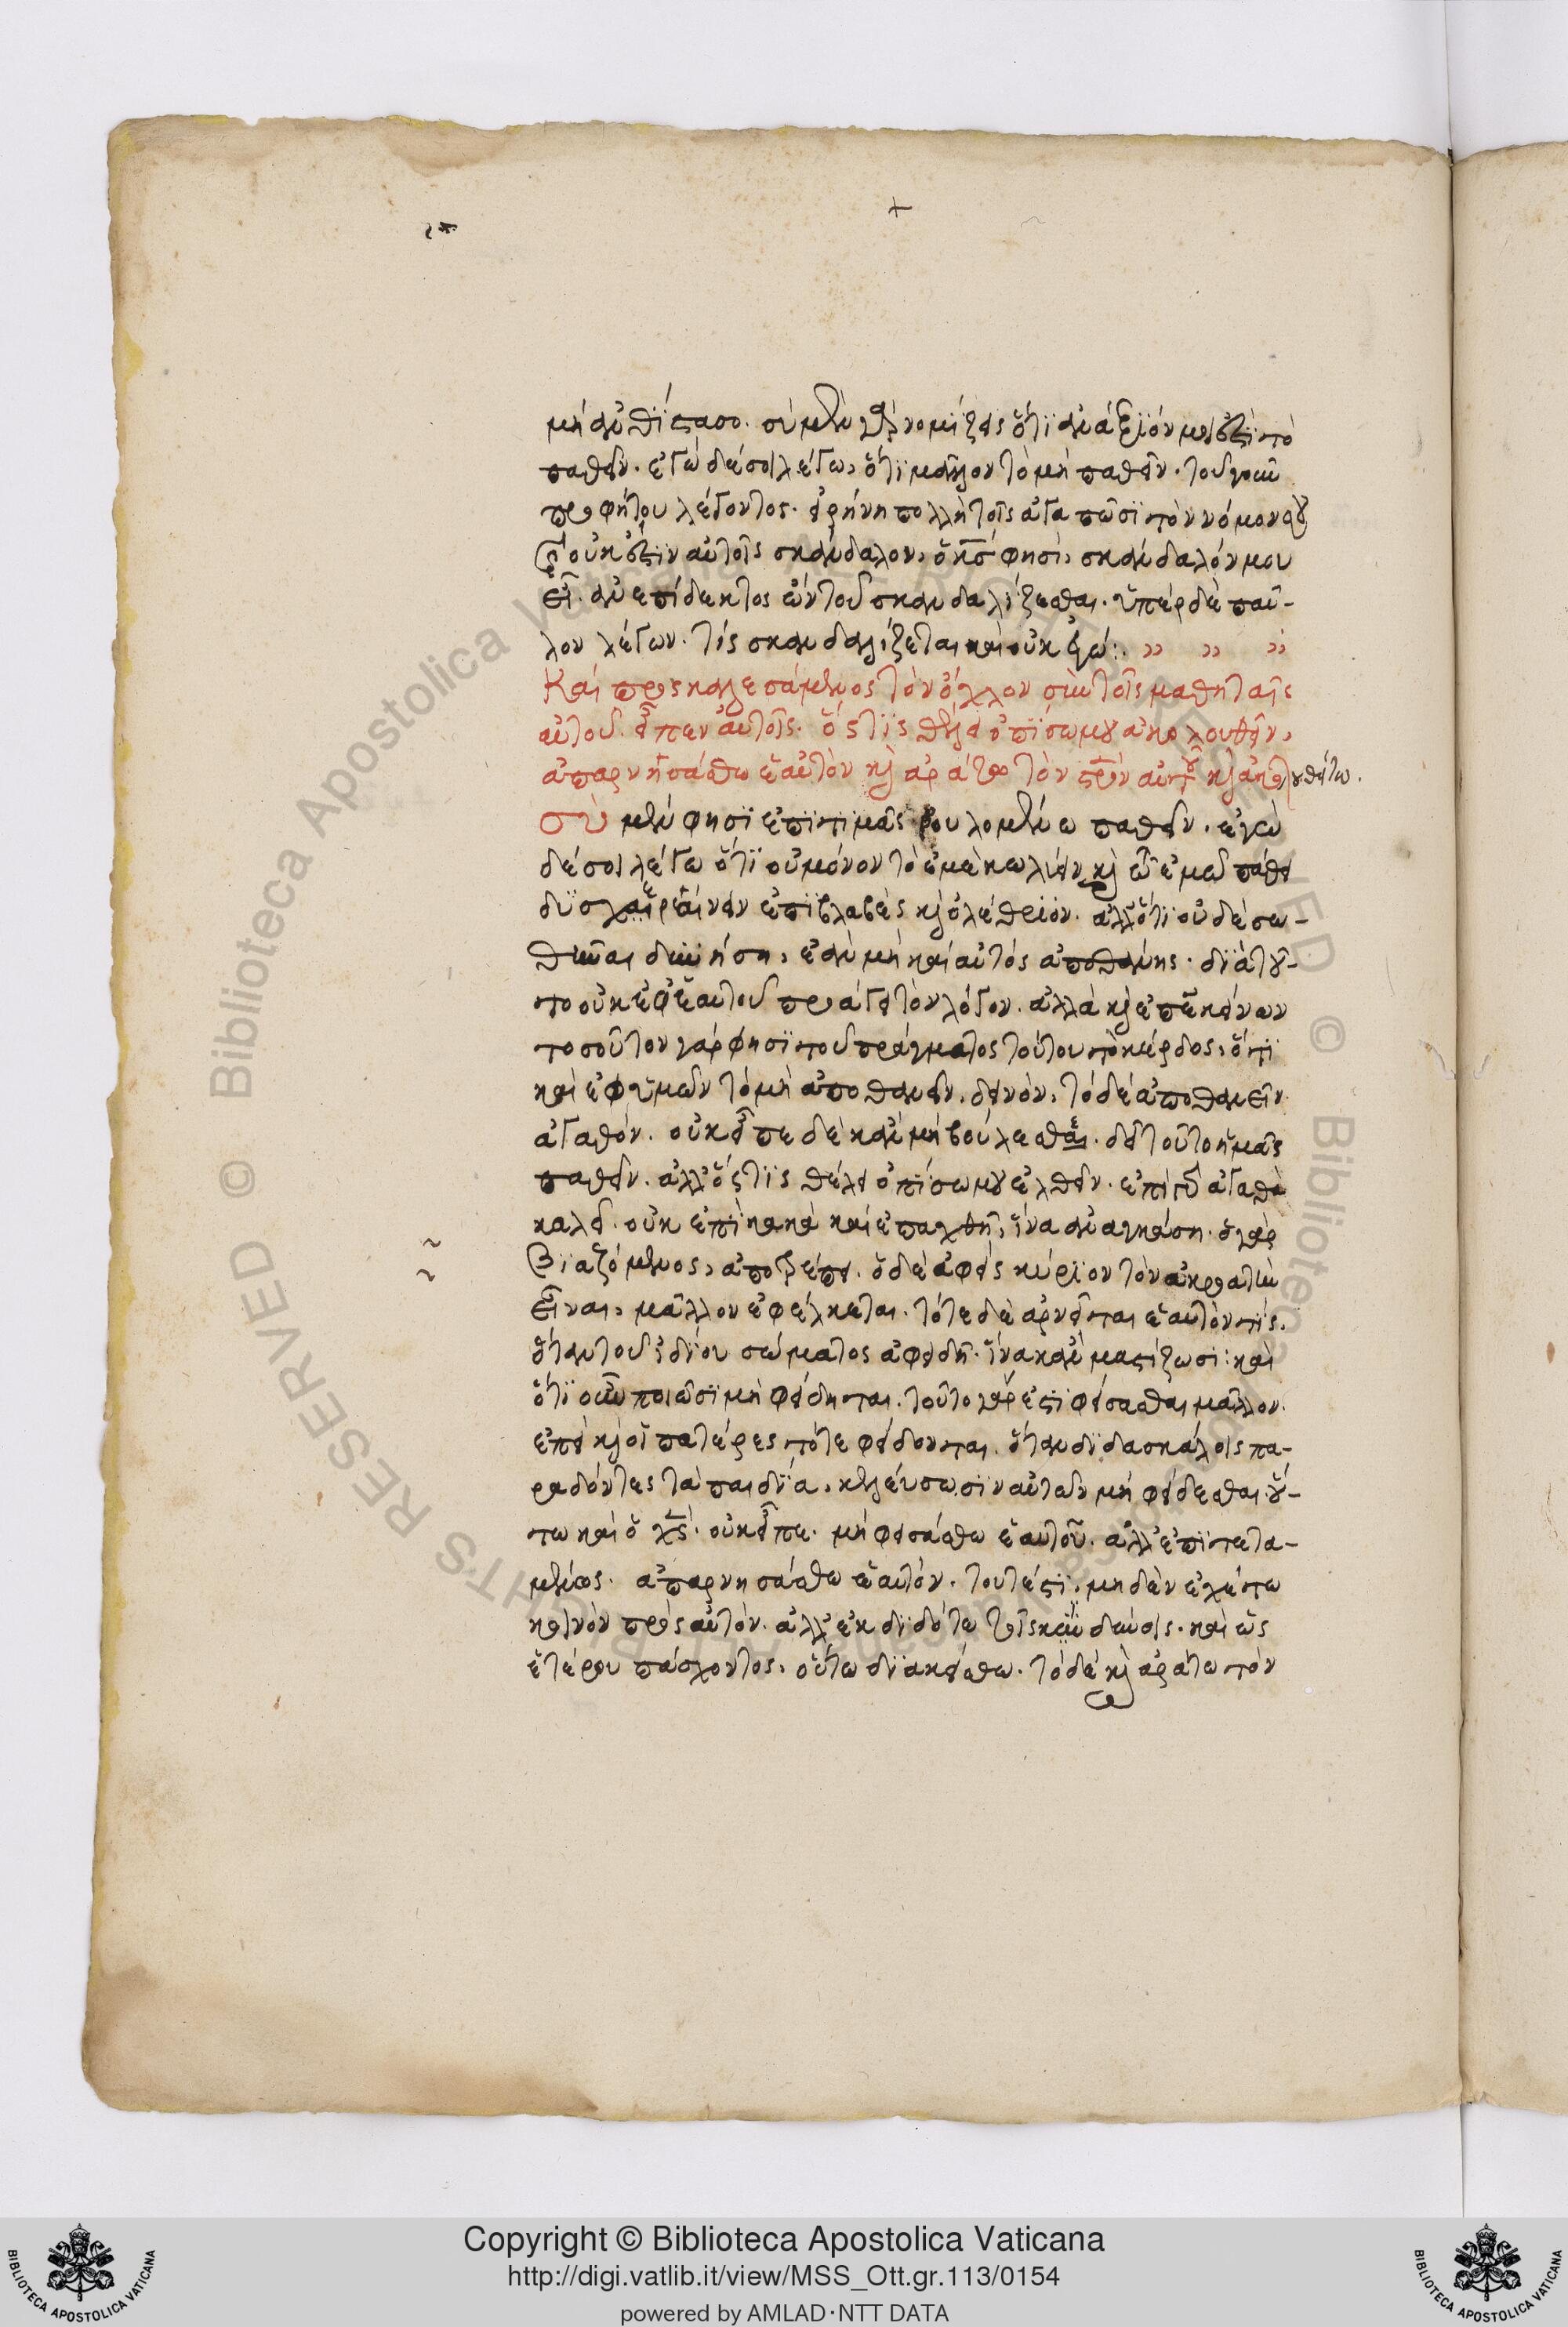 +
μὴ ἀνθίστασο. σὺ μὲν γὰρ νομίζεις ὅτι ἀνάξιόν μού ἐστι τὸ
παθεῖν. ἐγὼ δέ σοι λέγω, ὅτι μᾶλλον τὸ μὴ παθεῖν. τοῦ γοῦν
προφήτου λέγοντος. εἰρήνη πολλὴ τοῖς ἀγαπῶσι τὸν νόμον σου
καὶ οὐκ ἔστιν αὐτοῖς σκάνδαλον, ὁ κς φησὶ, σκάνδαλόν μου
εἶ. ἀνεπίδεκτος ὢν τοῦ σκανδαλίζεσθαι. ὑπὲρ δὲ παῦ-
λον λέγων. τίς σκανδαλίζεται καὶ οὐκ ἐγώ:. ,, ,, ,,
Καὶ προσκαλεσάμενος τὸν ὄχλον σὺν τοῖς μαθηταῖς
αὐτοῦ. εἶπεν αὐτοῖς. ὅστις θέλει ὀπίσω μου ἀκολουθεῖν,
ἀπαρνησάσθω ἑαυτὸν κὶ ἀράτω τὸν σρὸν αὐτοῦ κὶ ἀκολουθείτω.
σὺ μὲν φησὶ ἐπιτιμᾶς βουλομένω παθεῖν. ἐγὼ
δέ σοι λέγω ὅτι οὐ μόνον τὸ ἐμὲ κωλύειν κὶ ἐπ ἐμοῦ πάθει
δυσχεραίνειν ἐπιβλαβὲς κὶ ὀλέθριον. ἀλλ ὅτι οὐδὲ σω-
θῆναι δυνήση, ἐὰν μὴ καὶ αὐτὸς ἀποθάνης. διὰ τοῦ-
το οὐκ ἐφ ἑαυτοῦ προάγει τὸν λόγον. ἀλλὰ κὶ ἐπ ἐκείνων
τοσοῦτον γάρ φησι τοῦ πράγματος τούτου τὸ κέρδος, ὅτι
καὶ ἐφ ὑμῶν τὸ μὴ ἀποθανεῖν, δεινόν, τὸ δὲ ἀποθανεῖν
ἀγαθόν. οὐκ εἶπε δὲ κἂν μὴ βούλεσθαι. δεῖ τοῦτο ἡμᾶς
παθεῖν. ἀλλ ὅστις θέλει ὀπίσω μου ἐλθεῖν. ἐπὶ τὰ ἀγαθὰ
καλεῖ. οὐκ ἐπὶ κακὰ καὶ ἐπαχθῆ, ἵνα ἀναγκάση. ὁ γὰρ
βιαζόμενος, ἀποτρέπει. ὁ δὲ ἀφεὶς κύριον τὸν ἀκροατὴν
εἶναι, μᾶλλον ἐφέλκεται. τότε δὲ ἀρνεῖται ἑαυτόν τις,
ὅταν τοῦ ἰδίου σώματος ἀφειδῆ. ἵνα κἂν μαστίζωσι: καὶ
ὅτι οὖν ποιῶσι μὴ φείδηται. τοῦτο γάρ ἐστι φείσασθαι μᾶλλον.
ἐπεὶ κὶ οἱ πατέρες τότε φείδονται. ὅταν διδασκάλοις πα-
ραδόντες τὰ παιδία, κελεύσωσιν αὐτῶν μὴ φείδεσθαι. οὕ-
τω καὶ ὁ χς. οὐκ εἶπε. μὴ φεισάσθω ἑαυτοῦ. ἀλλ ἐπιτετα-
μένως. ἀπαρνησάσθω ἑαυτόν. τουτέστι, μηδὲν ἐχέτω
κοινὸν πρὸς αὐτόν. ἀλλ ἐκδιδότω τοῖς κινδύνοις. καὶ ὡς
ἑτέρου πάσχοντος, οὕτω διακείσθω. τὸ δὲ κὶ ἀράτω τὸν
Copyright © Biblioteca Apostolica Vaticana
http://digi.vatlib.it/view/MSS_Ott.gr.113/0154
powered by AMLAD·NTT DATA